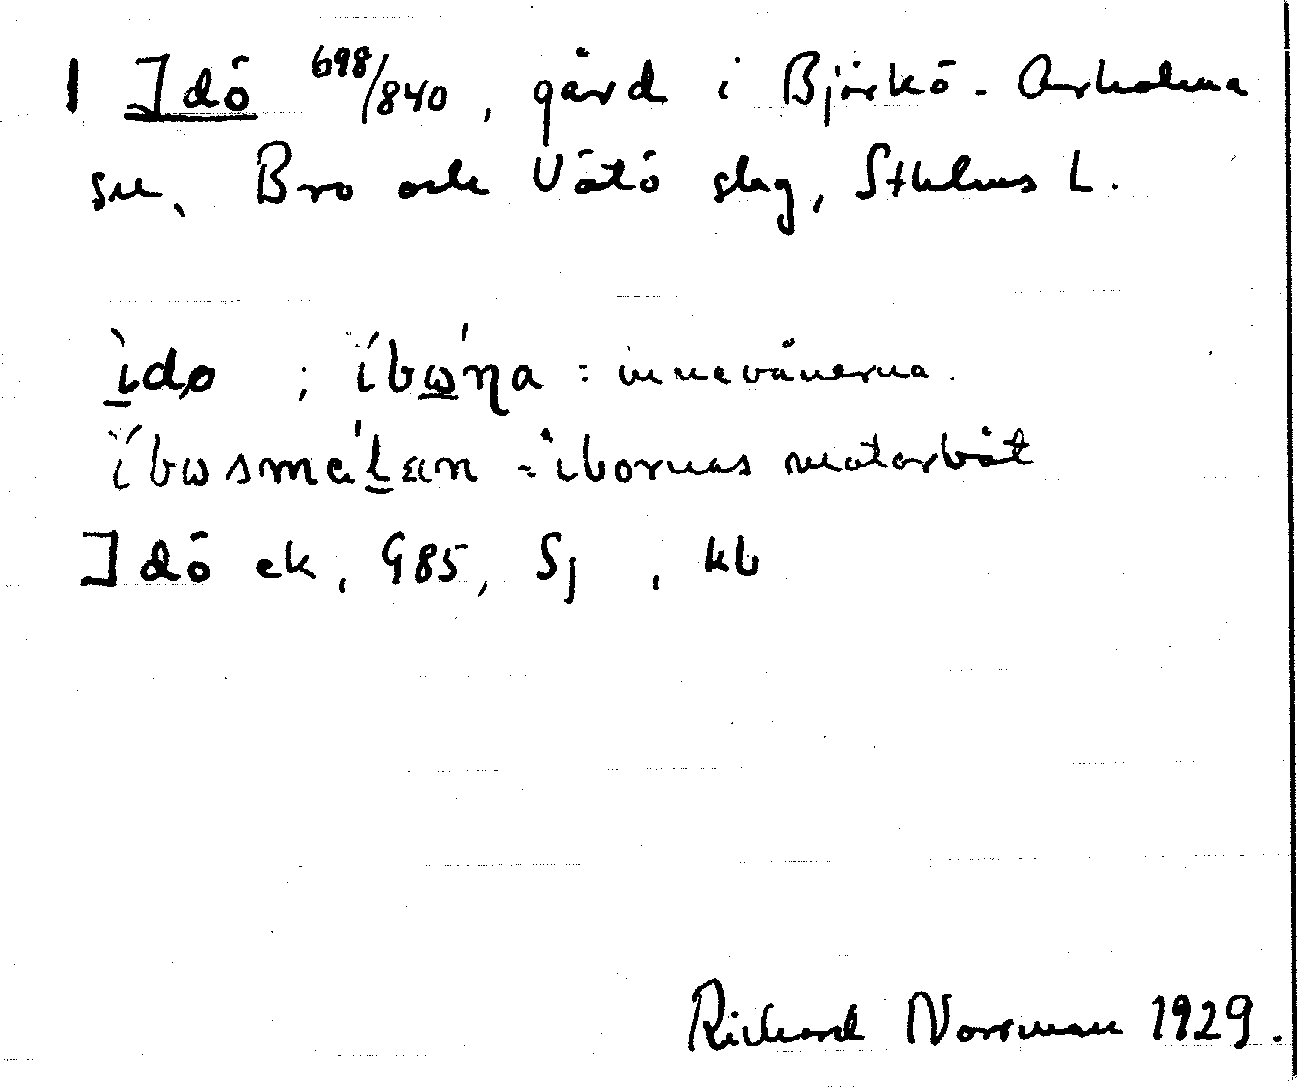 1 Idö 698/840, gård i Björkö-Arholma
sn, Bro och Vätö slag, Sthlms L.
ìdø ; íbω'ꞃa = innevånerna.
íbωsmé'tan = ibornas motorbåt
Idö ek, G85, Sj , kb
Richard Norrman 1929.